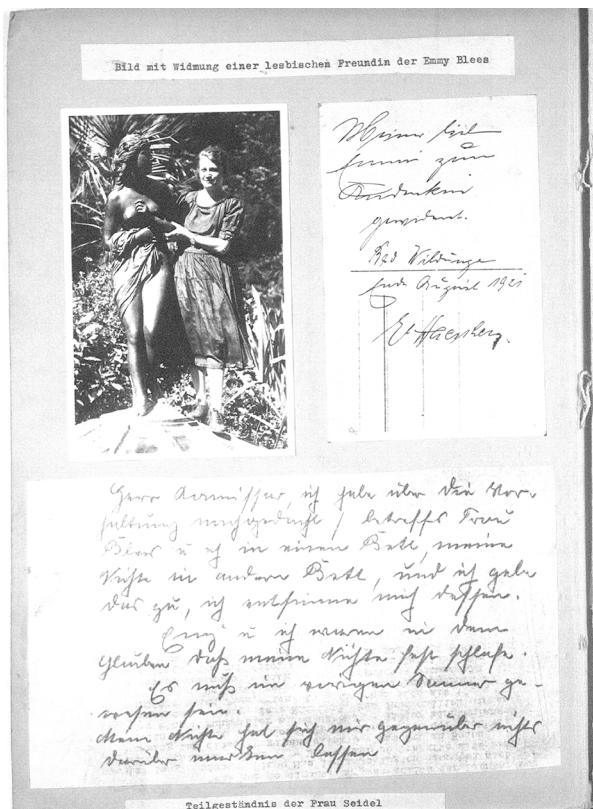 Bild mit Widmung einer lesbischen Freundin der Emmy Blees
Meiner lieb
Emmi zum
Andenken
gewidmet.
Bad Wildungen
Ende August 1921
Herr Kommissar, ich habe über die Vor-
haltung nachgedacht, betreffs Frau
Blees u ich in einem Bett, meine
Nichte in andern Bett, und ich gebe
das zu, ich entsinne mich dessen.
u ich waren in dem
Glauben daß meine Nichte fest schlafe.
Es muß im vorigen Sommer ge-
wesen sein.
Mein Nichte hat sich mir gegenüber nichts
darüber merken lassen
Teilgeständnis der Frau Seidel